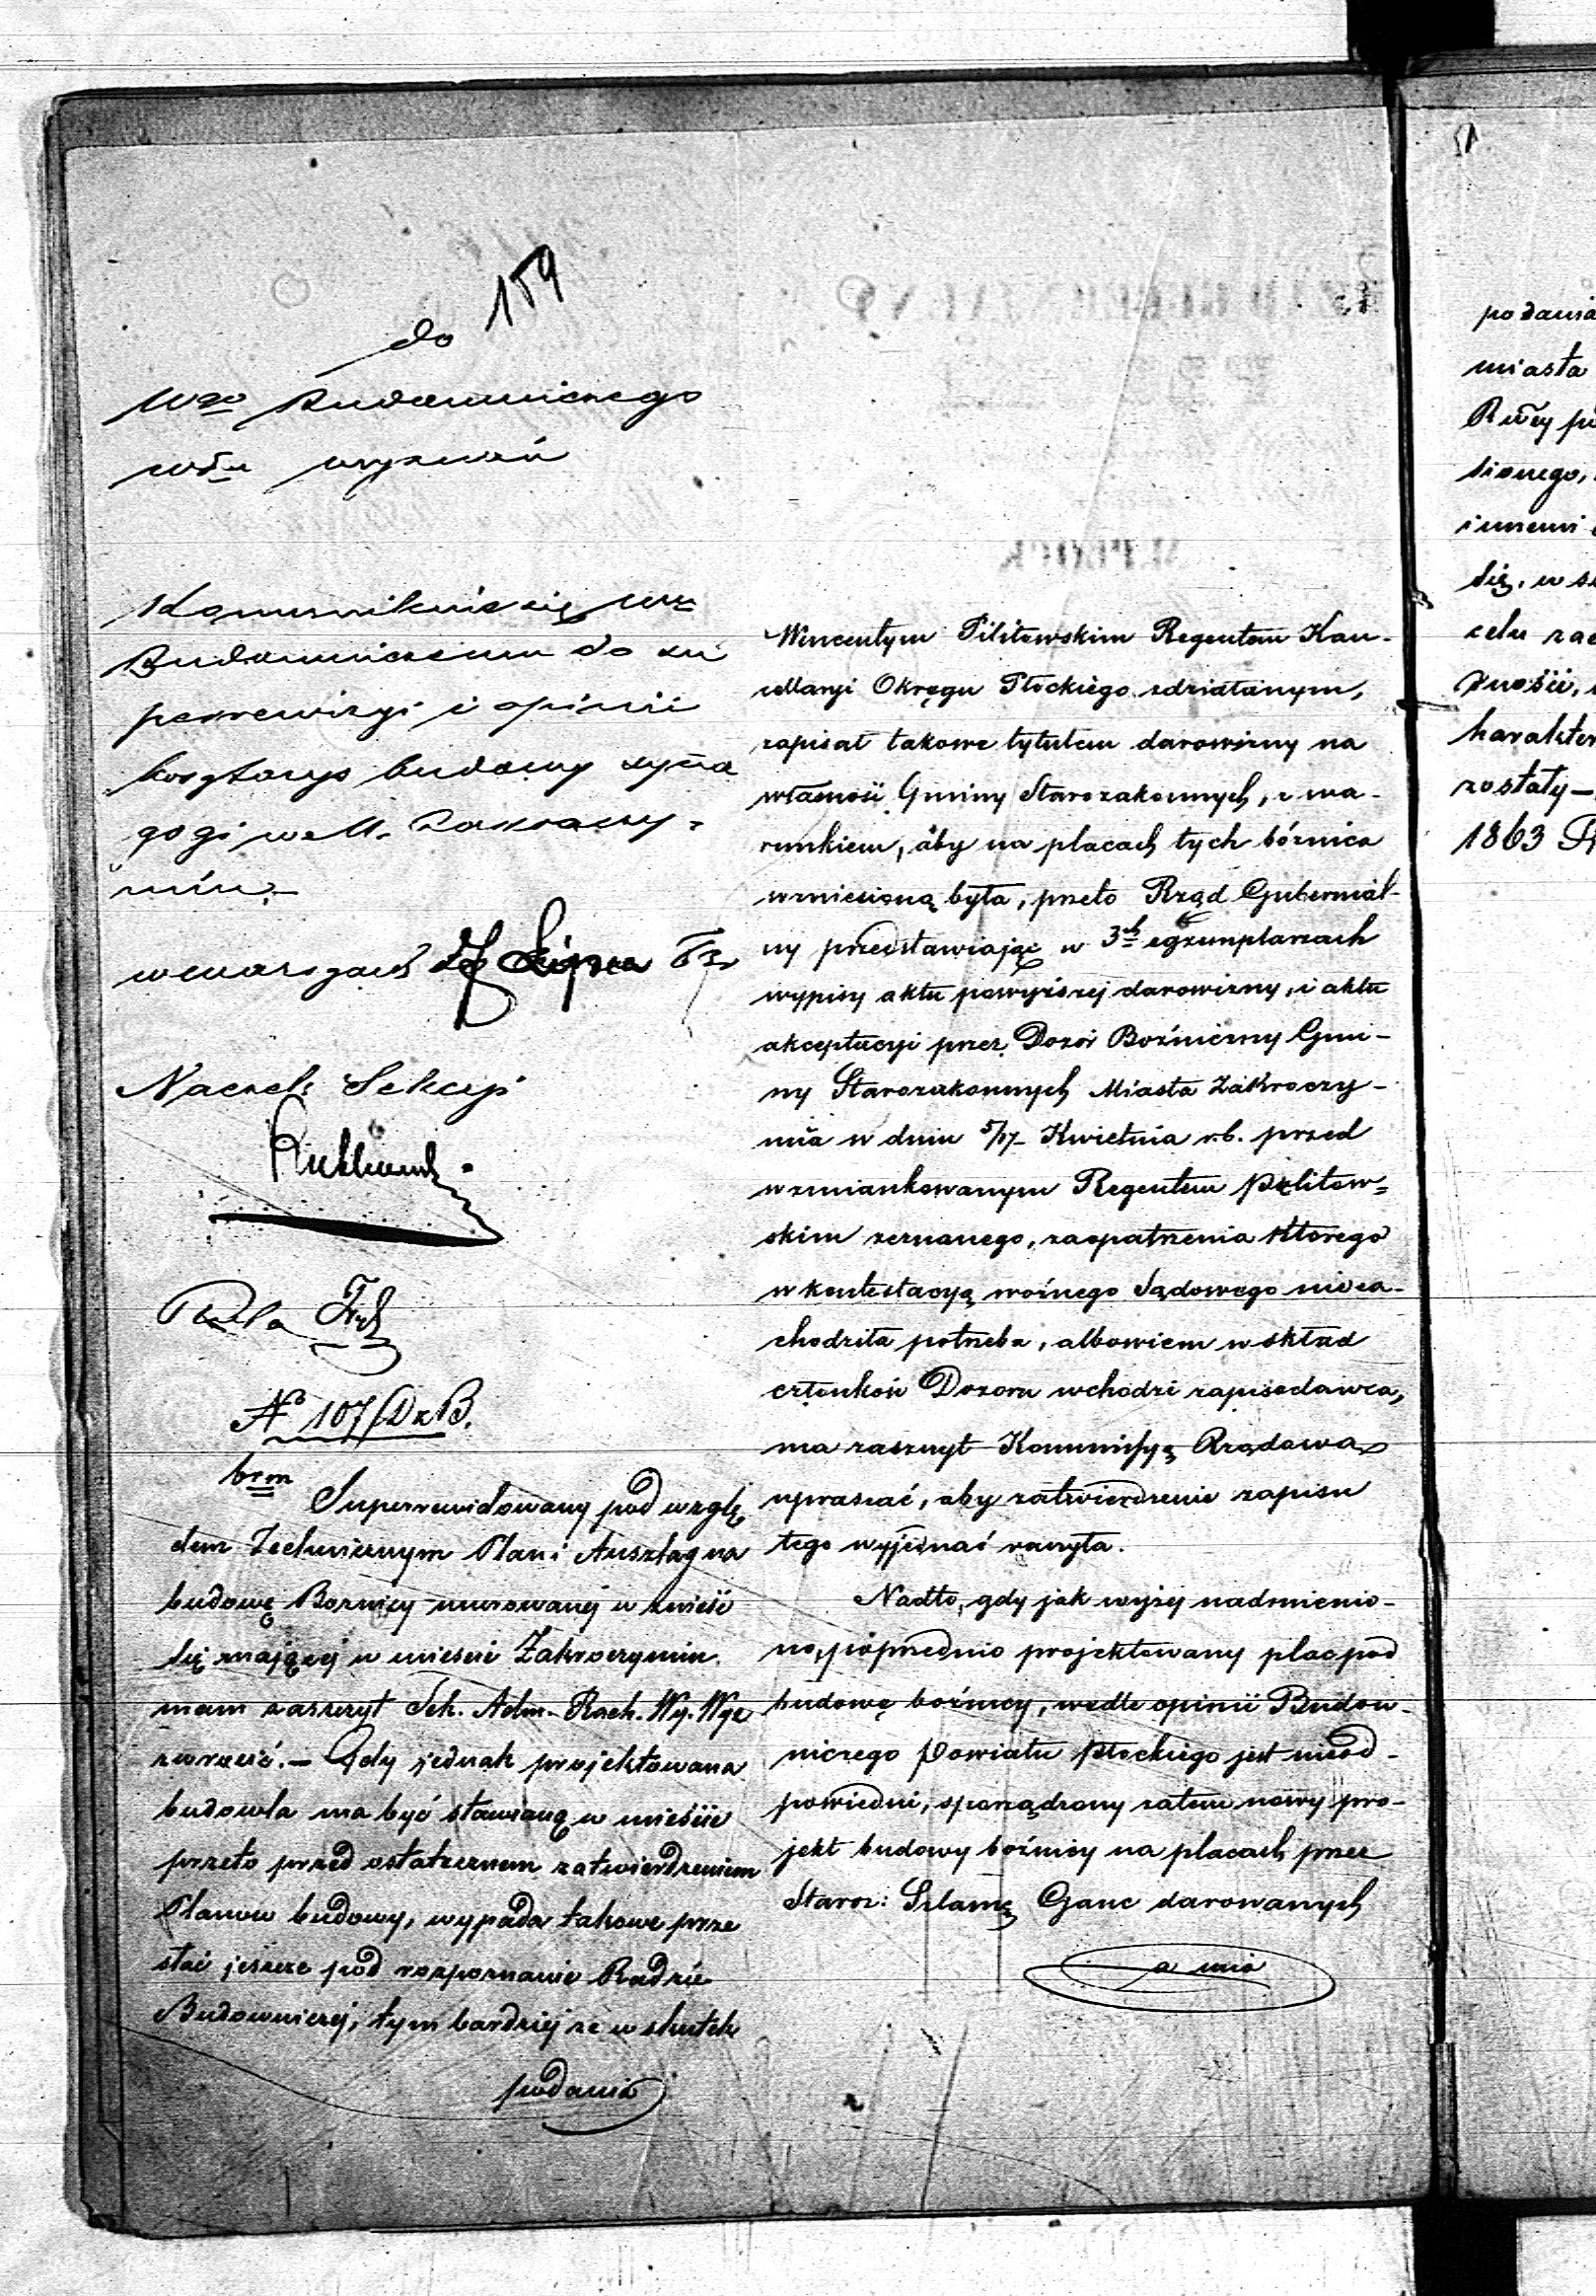 159
do
Wgo Budowniczego
w dm wyznań
Komunikuje się Wmu
Budowniczemu do su
perrewizyi i opinii
kosztorys budowy syna
gogi w M. Zakroczy-
miu.
w Warszawie Lipca 63
Naczelk Sekcyi
No 107/DzB.
Superrewidowany pod wzglę
dem Technicznym Plan i Anszlag na
budowę Boznicy murowanej w znieść
się mającej w mieście Zakroczymiu
mam zaszczyt Sek. Adm. Rach. Wy. Wyz
zwrócić. — Gdy jednak projektowana
budowla ma być stawianą w mieście
przeto przed ostatecznem zatwierdzeniem
Planów budowy, wypada takowe prze
słać jeszcze pod rozpoznanie Radzie
Budowniczej, tym bardziej że w skutek
podania
Wincentym Pilitowskim Regentem Kan-
cellaryi Okręgu Płockiego zdziałanym,
zapisał takowe tytułem darowizny na
własność Gminy Starozakonnych, z wa-
runkiem, aby na placach tych bóżnica
wzniesioną była, przeto Rząd Gubernial-
ny przedstawiając w 3ch egzemplarzach
wypisy aktu powyższej darowizny, i aktu
akceptacyi przez Dozór Bożniczny Gmi-
ny Starozakonnych Miasta Zakroczy-
mia w dniu 5/17 Kwietnia r.b. przed
wzmiankowanym Regentem Pilitow=
skim zeznanego, zaopatrzenia którego
w kontestacyą woźnego Sądowego nieza-
chodziła potrzeba, albowiem w skład
członków Dozoru wchodzi zapisodawca,
ma zaszczyt Kommissyą Rządową
upraszać, aby zatwierdzenie zapisu
tego wyjednać raczyła.
Nadto, gdy jak wyżej nadmienio-
no, poprzednio projektowany plac pod
budowę bożnicy, wedle opinii Budow-
niczego Powiatu Płockiego jest nieod-
powiedni, sporządzony zatem nowy pro-
jekt budowy bożnicy na placach przez
Staroz: Szlamę Ganc darowanych
podania
miasta
sionego,
się, w
celu
harakter
zostały —
1863